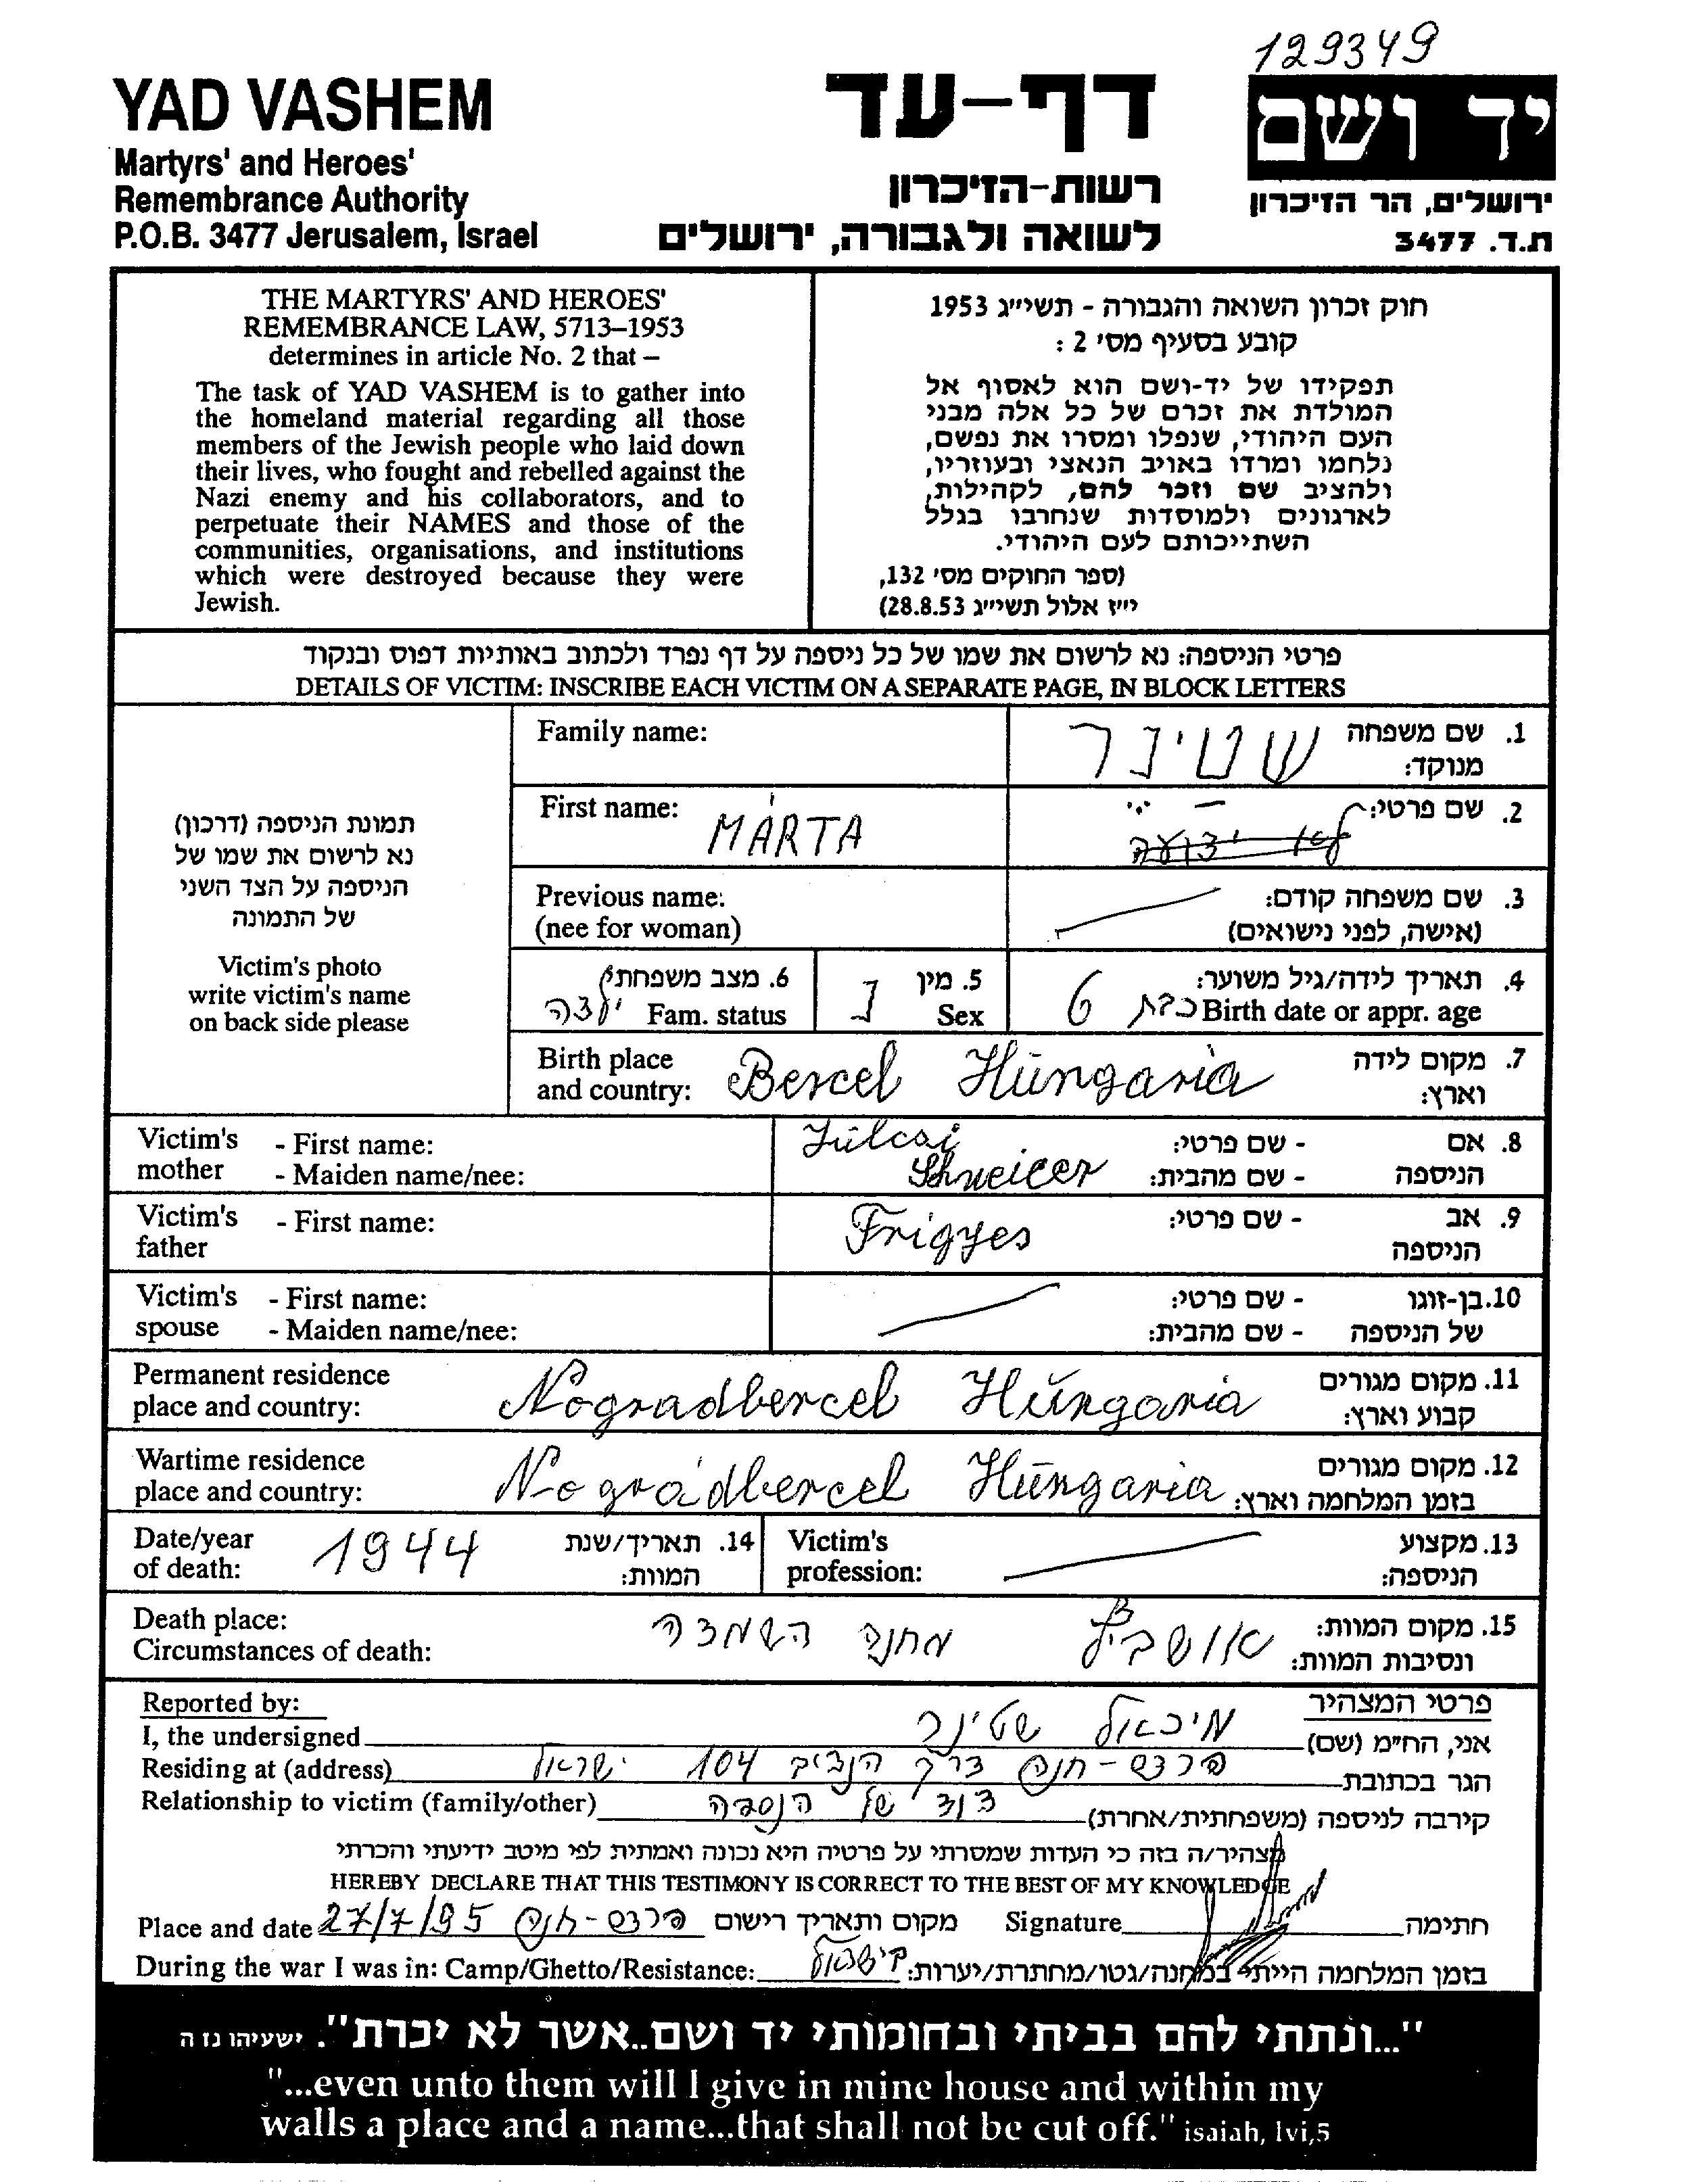 129349
YAD VASHEM
Martyrs' and Heroes'
Remembrance Authority
P.O.B. 3477 Jerusalem, Israel
דף-עד
רשות-הזיכרון
לשואה ולגבורה, ירושלים
יד ושם
ירושלים, הר הזיכרון
ת.ד. 3477
THE MARTYRS' AND HEROES'
REMEMBRANCE LAW, 5713–1953
determines in article No. 2 that –
The task of YAD VASHEM is to gather into
the homeland material regarding all those
members of the Jewish people who laid down
their lives, who fought and rebelled against the
Nazi enemy and his collaborators, and to
perpetuate their NAMES and those of the
communities, organisations, and institutions
which were destroyed because they were
Jewish.
חוק זכרון השואה והגבורה - תשי״ג 1953
קובע בסעיף מס' 2 :
תפקידו של יד-ושם הוא לאסוף אל
המולדת את זכרם של כל אלה מבני
העם היהודי, שנפלו ומסרו את נפשם,
נלחמו ומרדו באויב הנאצי ובעוזריו,
ולהציב שם וזכר להם, לקהילות,
לארגונים ולמוסדות שנחרבו בגלל
השתייכותם לעם היהודי.
(ספר החוקים מס' 132,
י״ז אלול תשי״ג 28.8.53)
פרטי הניספה: נא לרשום את שמו של כל ניספה על דף נפרד ולכתוב באותיות דפוס ובנקוד
DETAILS OF VICTIM: INSCRIBE EACH VICTIM ON A SEPARATE PAGE, IN BLOCK LETTERS
תמונת הניספה (דרכון)
נא לרשום את שמו של
הניספה על הצד השני
של התמונה
Victim's photo
write victim's name
on back side please
Family name: שטינר 1. שם משפחה
מנוקד:
First name: MÁRTA 2. שם פרטי:
Previous name: 3. שם משפחה קודם:
(nee for woman) (אישה, לפני נישואים)
6. מצב משפחתי 5. מין 4. תאריך לידה/גיל משוער:
ילדה Fam. status נ Sex 6 כבת Birth date or appr. age
Birth place Bercel Hungaria 7. מקום לידה
and country: וארץ:
Victim's - First name: Julcsi - שם פרטי: 8. אם
mother - Maiden name/nee: - שם מהבית: הניספה
Victim's - First name: Frigyes - שם פרטי: 9. אב
father הניספה
Victim's - First name: - שם פרטי: 10. בן-זוגו
spouse - Maiden name/nee: - שם מהבית: של הניספה
Permanent residence Nogradbercel Hungaria 11. מקום מגורים
place and country: קבוע וארץ:
Wartime residence Nográdbercel Hungaria 12. מקום מגורים
place and country: בזמן המלחמה וארץ:
Date/year 1944 14. תאריך/שנת Victim's 13. מקצוע
of death: המוות: profession: הניספה:
Death place: אושביץ מחנה השמדה 15. מקום המוות:
Circumstances of death: ונסיבות המוות:
Reported by: פרטי המצהיר
I, the undersigned מיכאל שטינר אני, הח״מ (שם)
Residing at (address) פרדס-חנה דרך הנדיב 104 ישראל הגר בכתובת
Relationship to victim (family/other) דוד של הנספה קירבה לניספה (משפחתית/אחרת)
מצהיר/ה בזה כי העדות שמסרתי על פרטיה היא נכונה ואמתית לפי מיטב ידיעתי והכרתי
HEREBY DECLARE THAT THIS TESTIMONY IS CORRECT TO THE BEST OF MY KNOWLEDGE
Place and date 27/7/95 פרדס-חנה מקום ותאריך רישום Signature חתימה
During the war I was in: Camp/Ghetto/Resistance: בישראל בזמן המלחמה הייתי במחנה/גטו/מחתרת/יערות:
"...ונתתי להם בביתי ובחומותי יד ושם..אשר לא יכרת". ישעיהו נז ה
"...even unto them will I give in mine house and within my
walls a place and a name...that shall not be cut off." isaiah, lvi,5